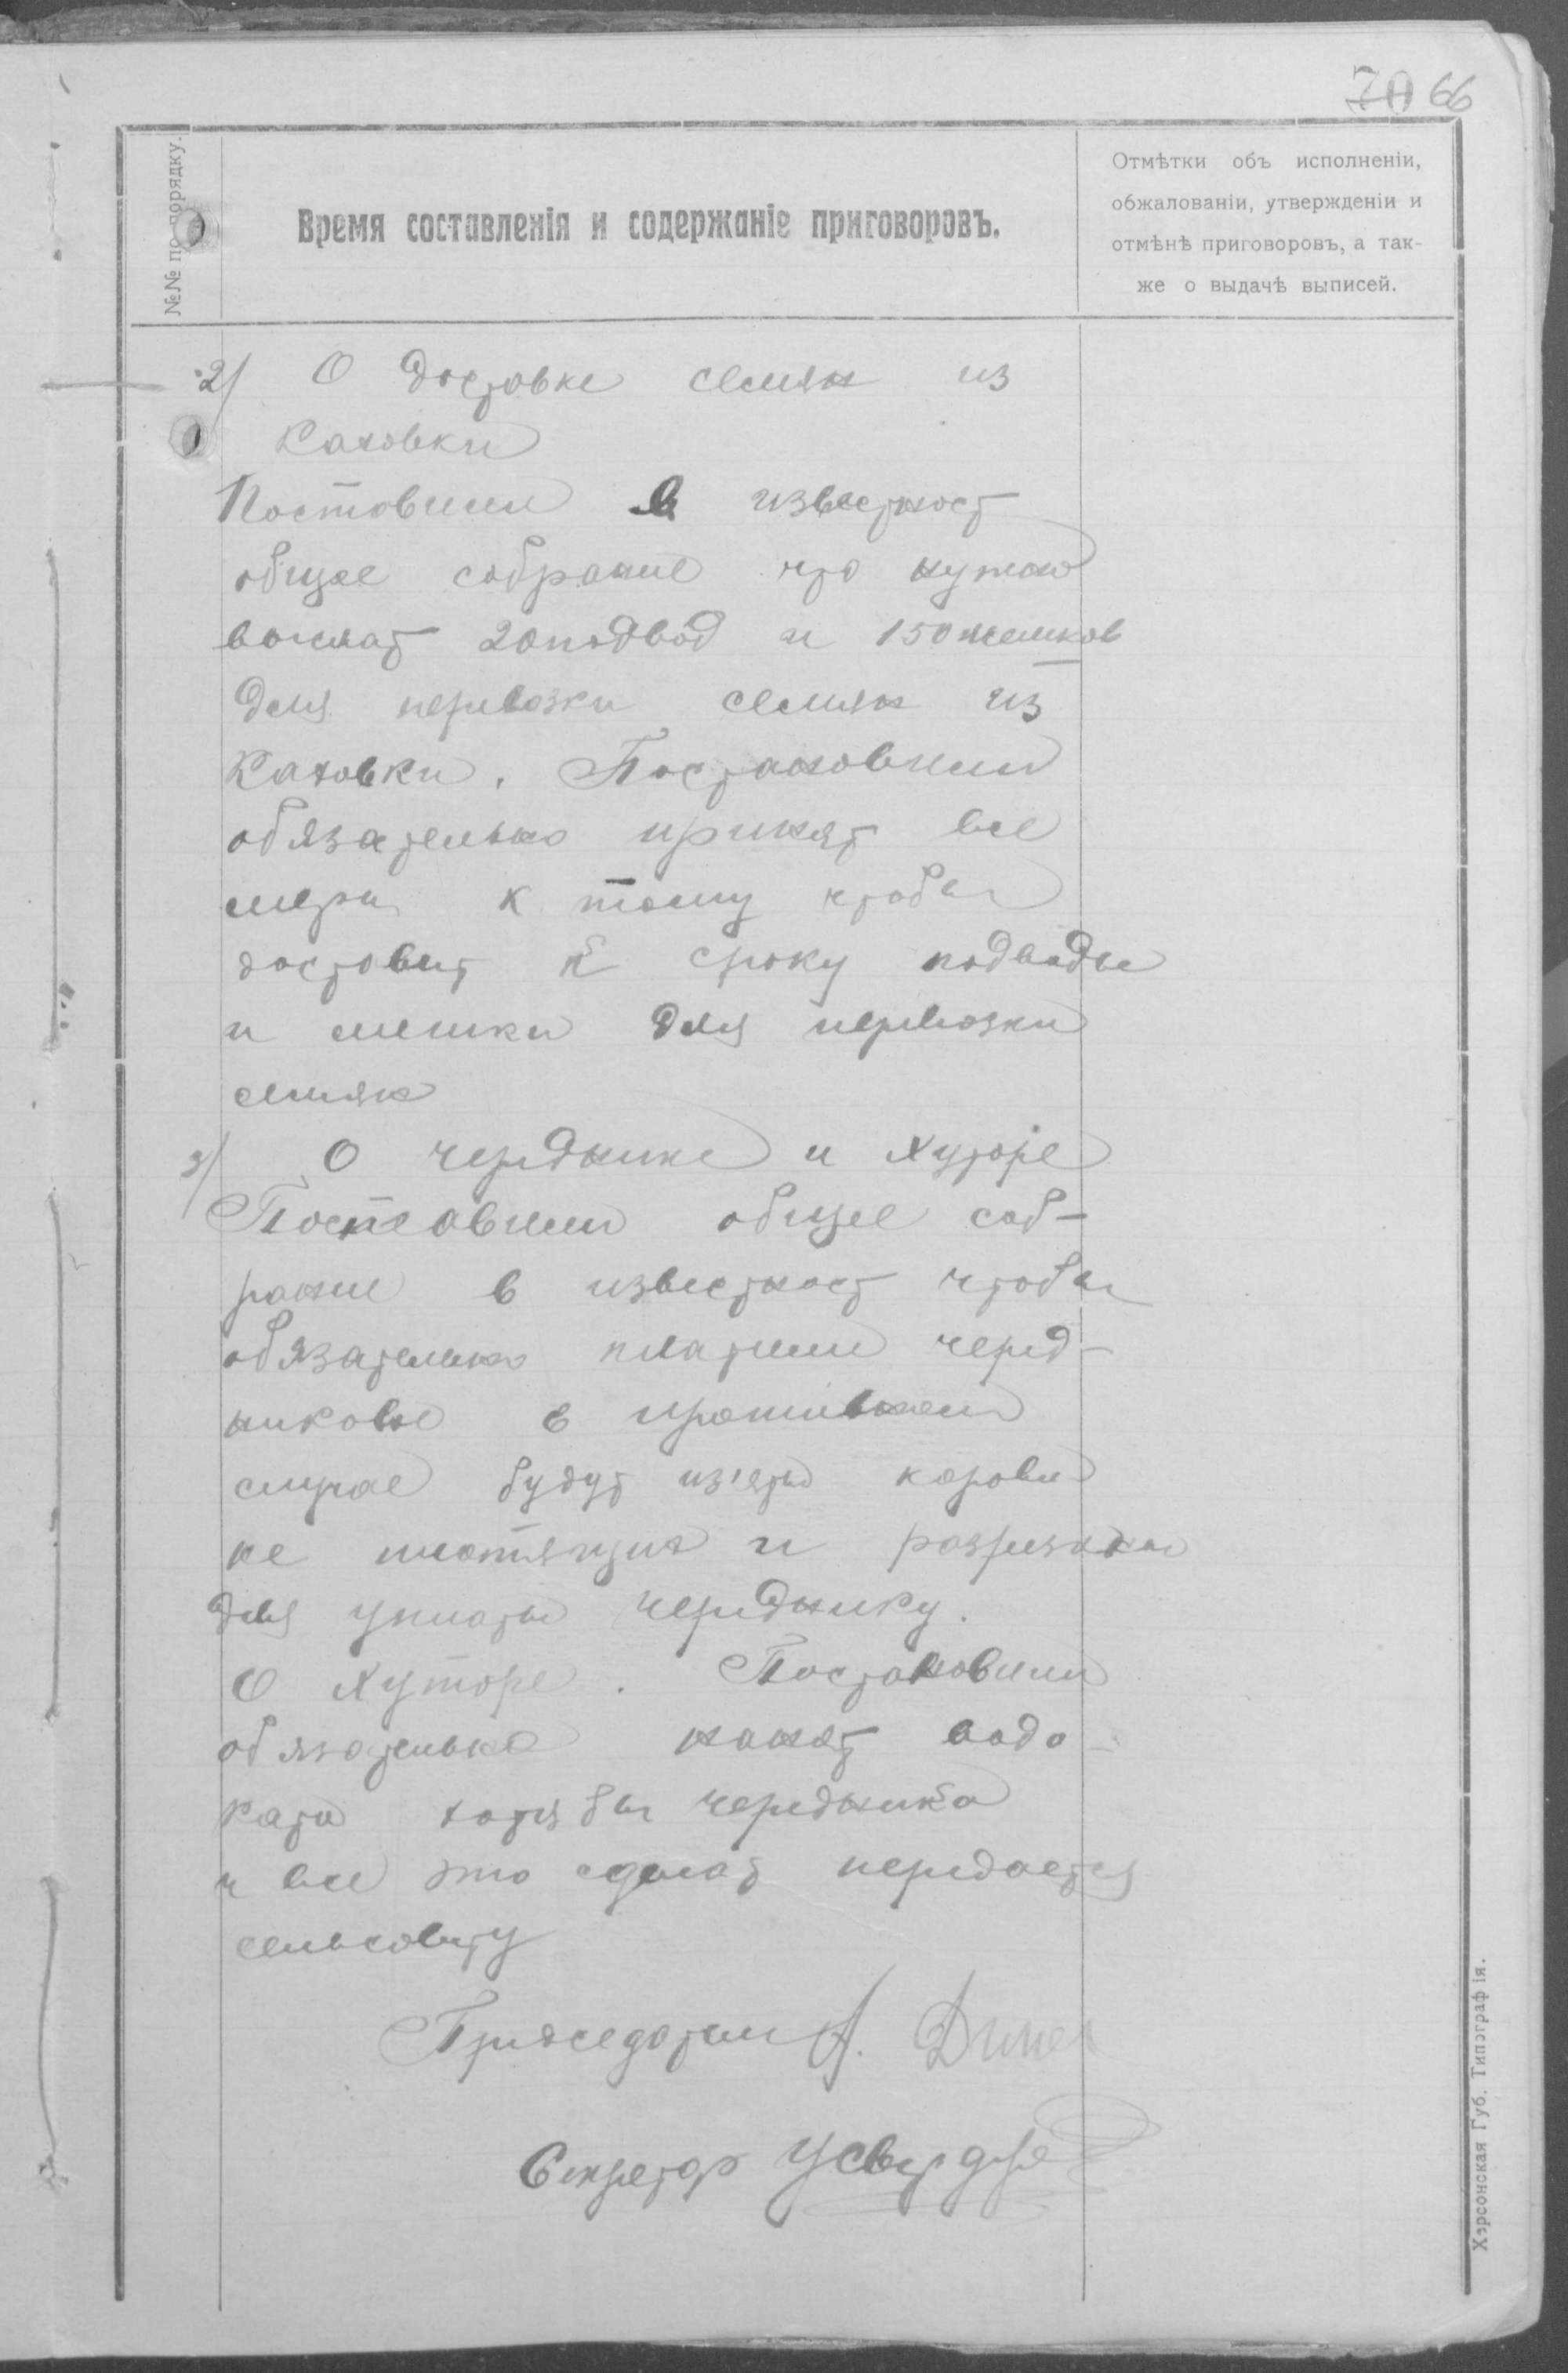 70 66
№№ по порядку.
Время составленія и содержаніе приговоровъ.
Отмѣтки объ исполненіи,
обжалованіи, утвержденіи и
отмѣнѣ приговоровъ, а так-
же о выдачѣ выписей.
2) О доставке семян из
Каховки
Поставили в известност
общее собрание что нужно
вислат 20 подвод и 150 мешков
для перевозки семян из
Каховки. Постановили
обязателько принят все
мери к тому чтоби
доставит к сроку подводи
и мешки для перевозки
семян
3) О череднике и Хуторе
Поставили общее соб-
рание в известност чтоби
обязательно платили черед-
никовое в противном
случае будут изяти корови
не платящих и
для уплати череднику.
О Хуторе. Постановили
обязательно нанят водо-
ката хотяби чередника
и все это сделат передается
сельсовету
Председатель А.
Секретар
Херсонская Губ. Типографія.